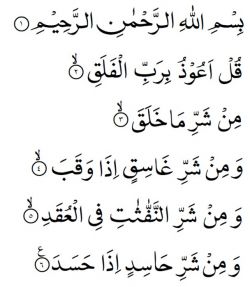 بِسْمِ اللهِ الرَّحْمٰنِ الرَّحِيْمِ ۝١
قُلْ اَعُوْذُ بِرَبِّ الْفَلَقِ ۝٢ۙ
مِنْ شَرِّ مَا خَلَقَ ۝٣ۙ
وَ مِنْ شَرِّ غَاسِقٍ اِذَا وَقَبَ ۝٤ۙ
وَ مِنْ شَرِّ النَّفّٰثٰتِ فِى الْعُقَدِ ۝٥ۙ
وَ مِنْ شَرِّ حَاسِدٍ اِذَا حَسَدَ ۝٦ࣖ